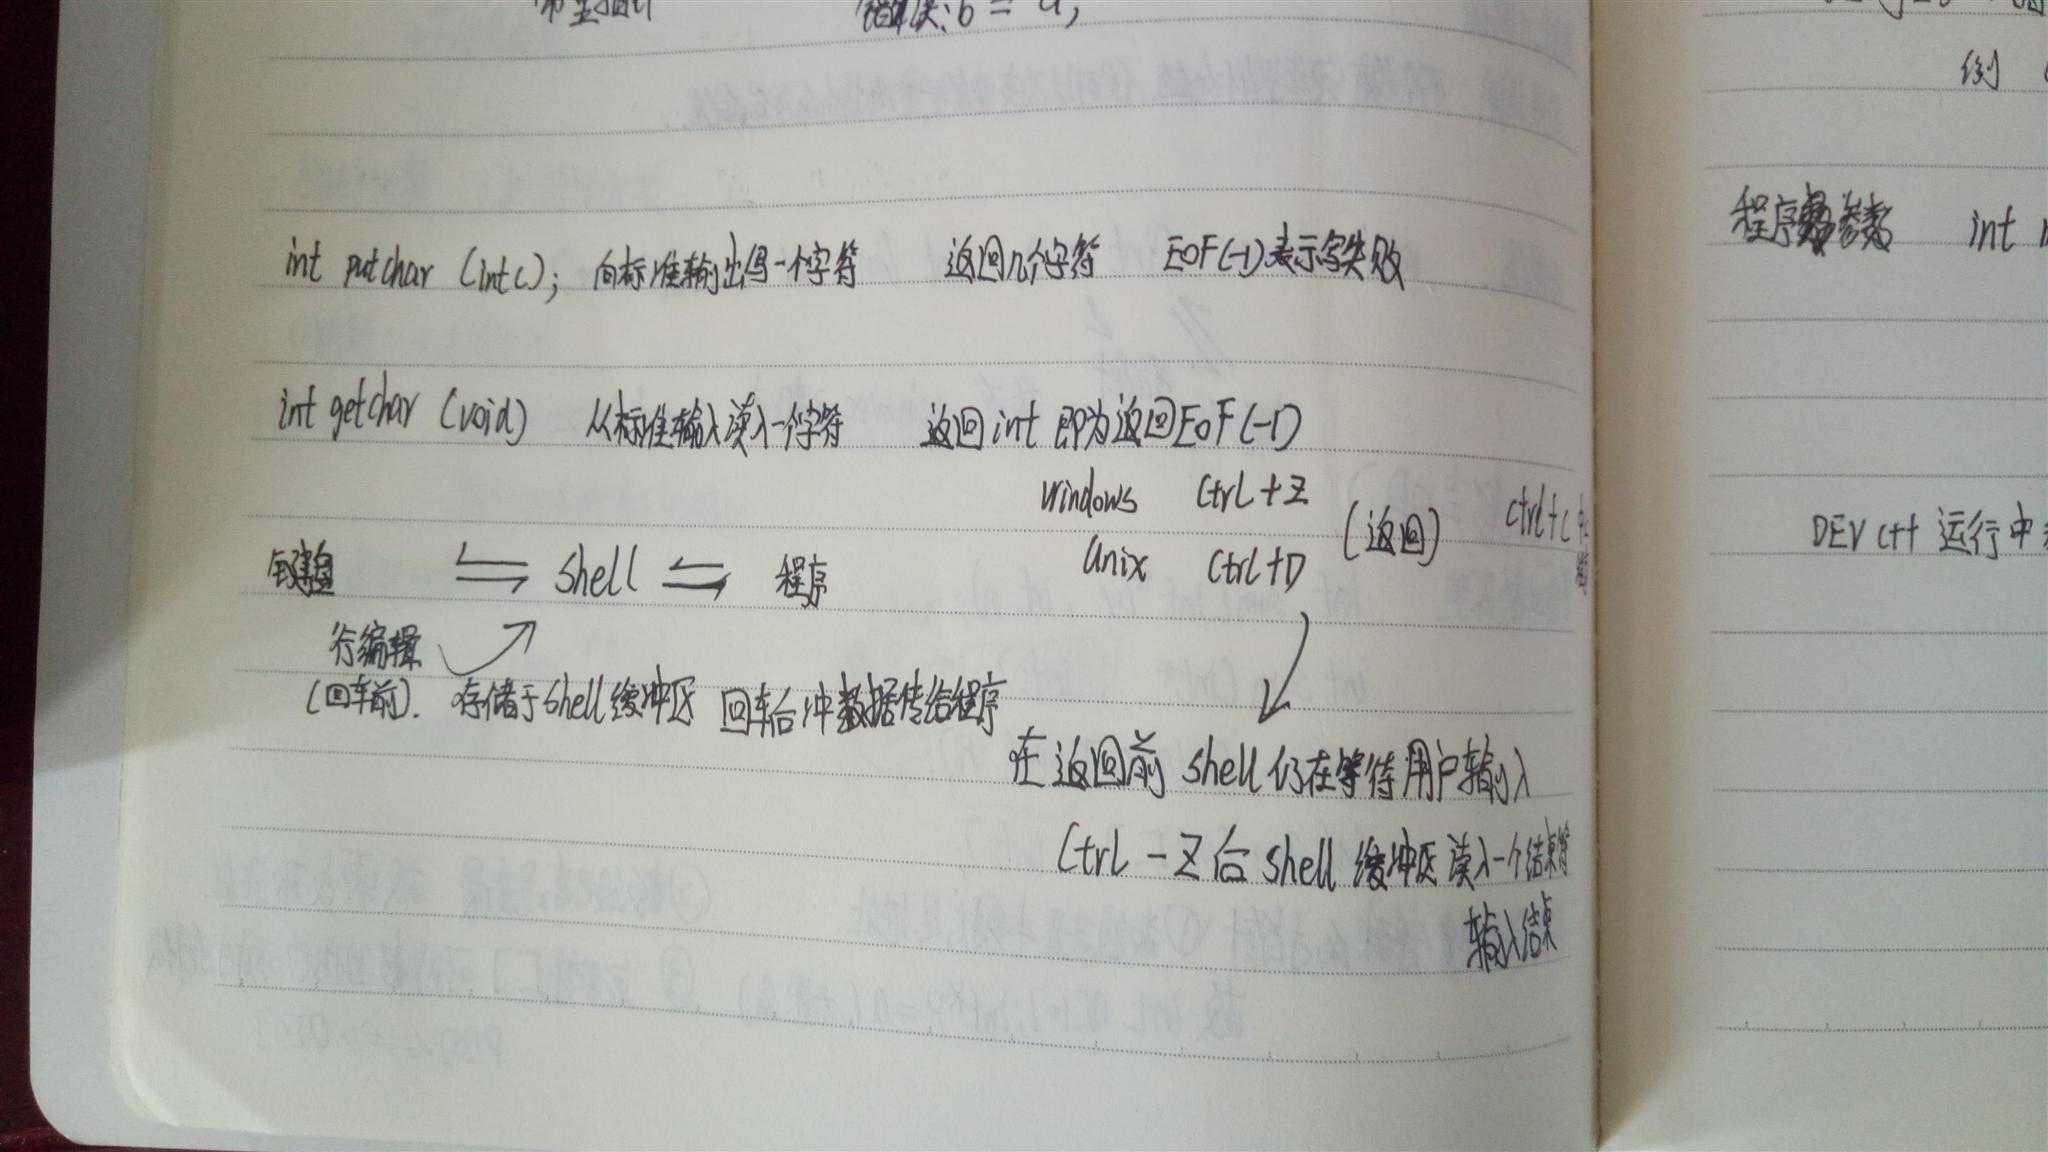 错误:b = a;
int putchar (int c); 向标准输出写一个字符 返回几个字符 EOF(-1)表示写失败
int getchar (void) 从标准输入读入一个字符 返回int 即为返回EOF(-1)
windows Ctrl+Z
(返回) Ctrl+C
Unix Ctrl+D
键盘 ⇋ Shell ⇋ 程序
行编辑
(回车前). 存储于shell缓冲区 回车后冲数据传给程序
在返回前 shell仍在等待用户输入
Ctrl-Z后shell 缓冲区读入一个结束符
输入结束
例
程序 参数 int
DEV C++ 运行中